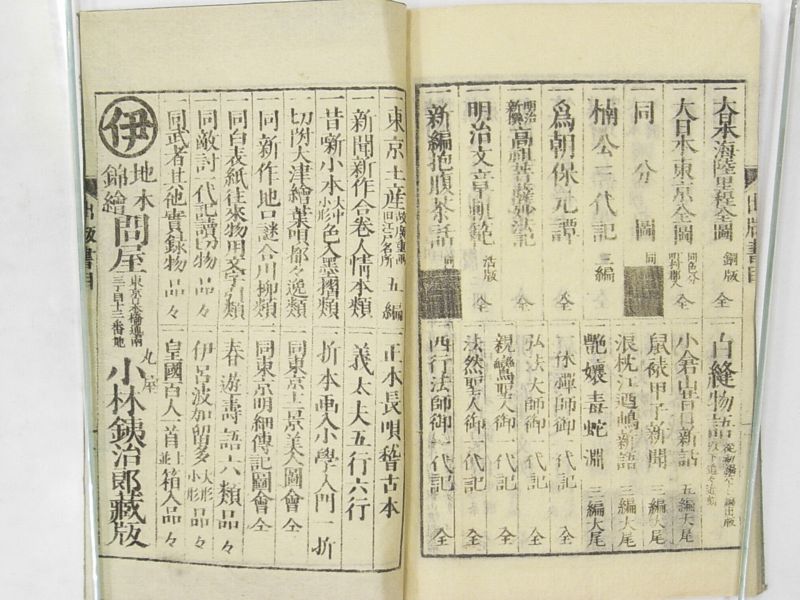 大日本海陸里程全圖 銅版 全
大日本東京全圖 全
同分圖 同
楠公三代記 三編
爲朝保元譚 全
高祖菩薩御法記 全
明治文章軌範 活版 全
新編抱腹茶話 同
白縫物語
小倉山青樹新話 五編大尾
鼠裱甲子新聞 三編大尾
浪枕江の嶋新語 三編大尾
艷孃毒蛇淵 三編大尾
一休禪師御一代記 全
弘法大師御一代記 全
親鸞聖人御一代記 全
法然聖人御一代記 全
西行法師御一代記 全
出版書目
東京土産 五編
新聞新作合卷人情本類
昔噺小本 大中小形 色入墨摺類
切附大津繪葉唄都々逸類
同新作地口謎合川柳類
同白表紙往來物明文字引類
同敵討一代記讀切物 品々
同武者其他實録物 品々
正本長唄稽古本
義太夫五行六行
折本畫入小學入門一折
同東京土京美人圖會 全
同東京明細傳記圖會 全
春遊壽語六類品々
伊呂波加留多 大形小形 品々
皇國百人一首 並上 箱入品々
伊
地本
錦繪
問屋
東京日本橋通南
三丁目十三番地
丸屋
小林鉄治郎藏版